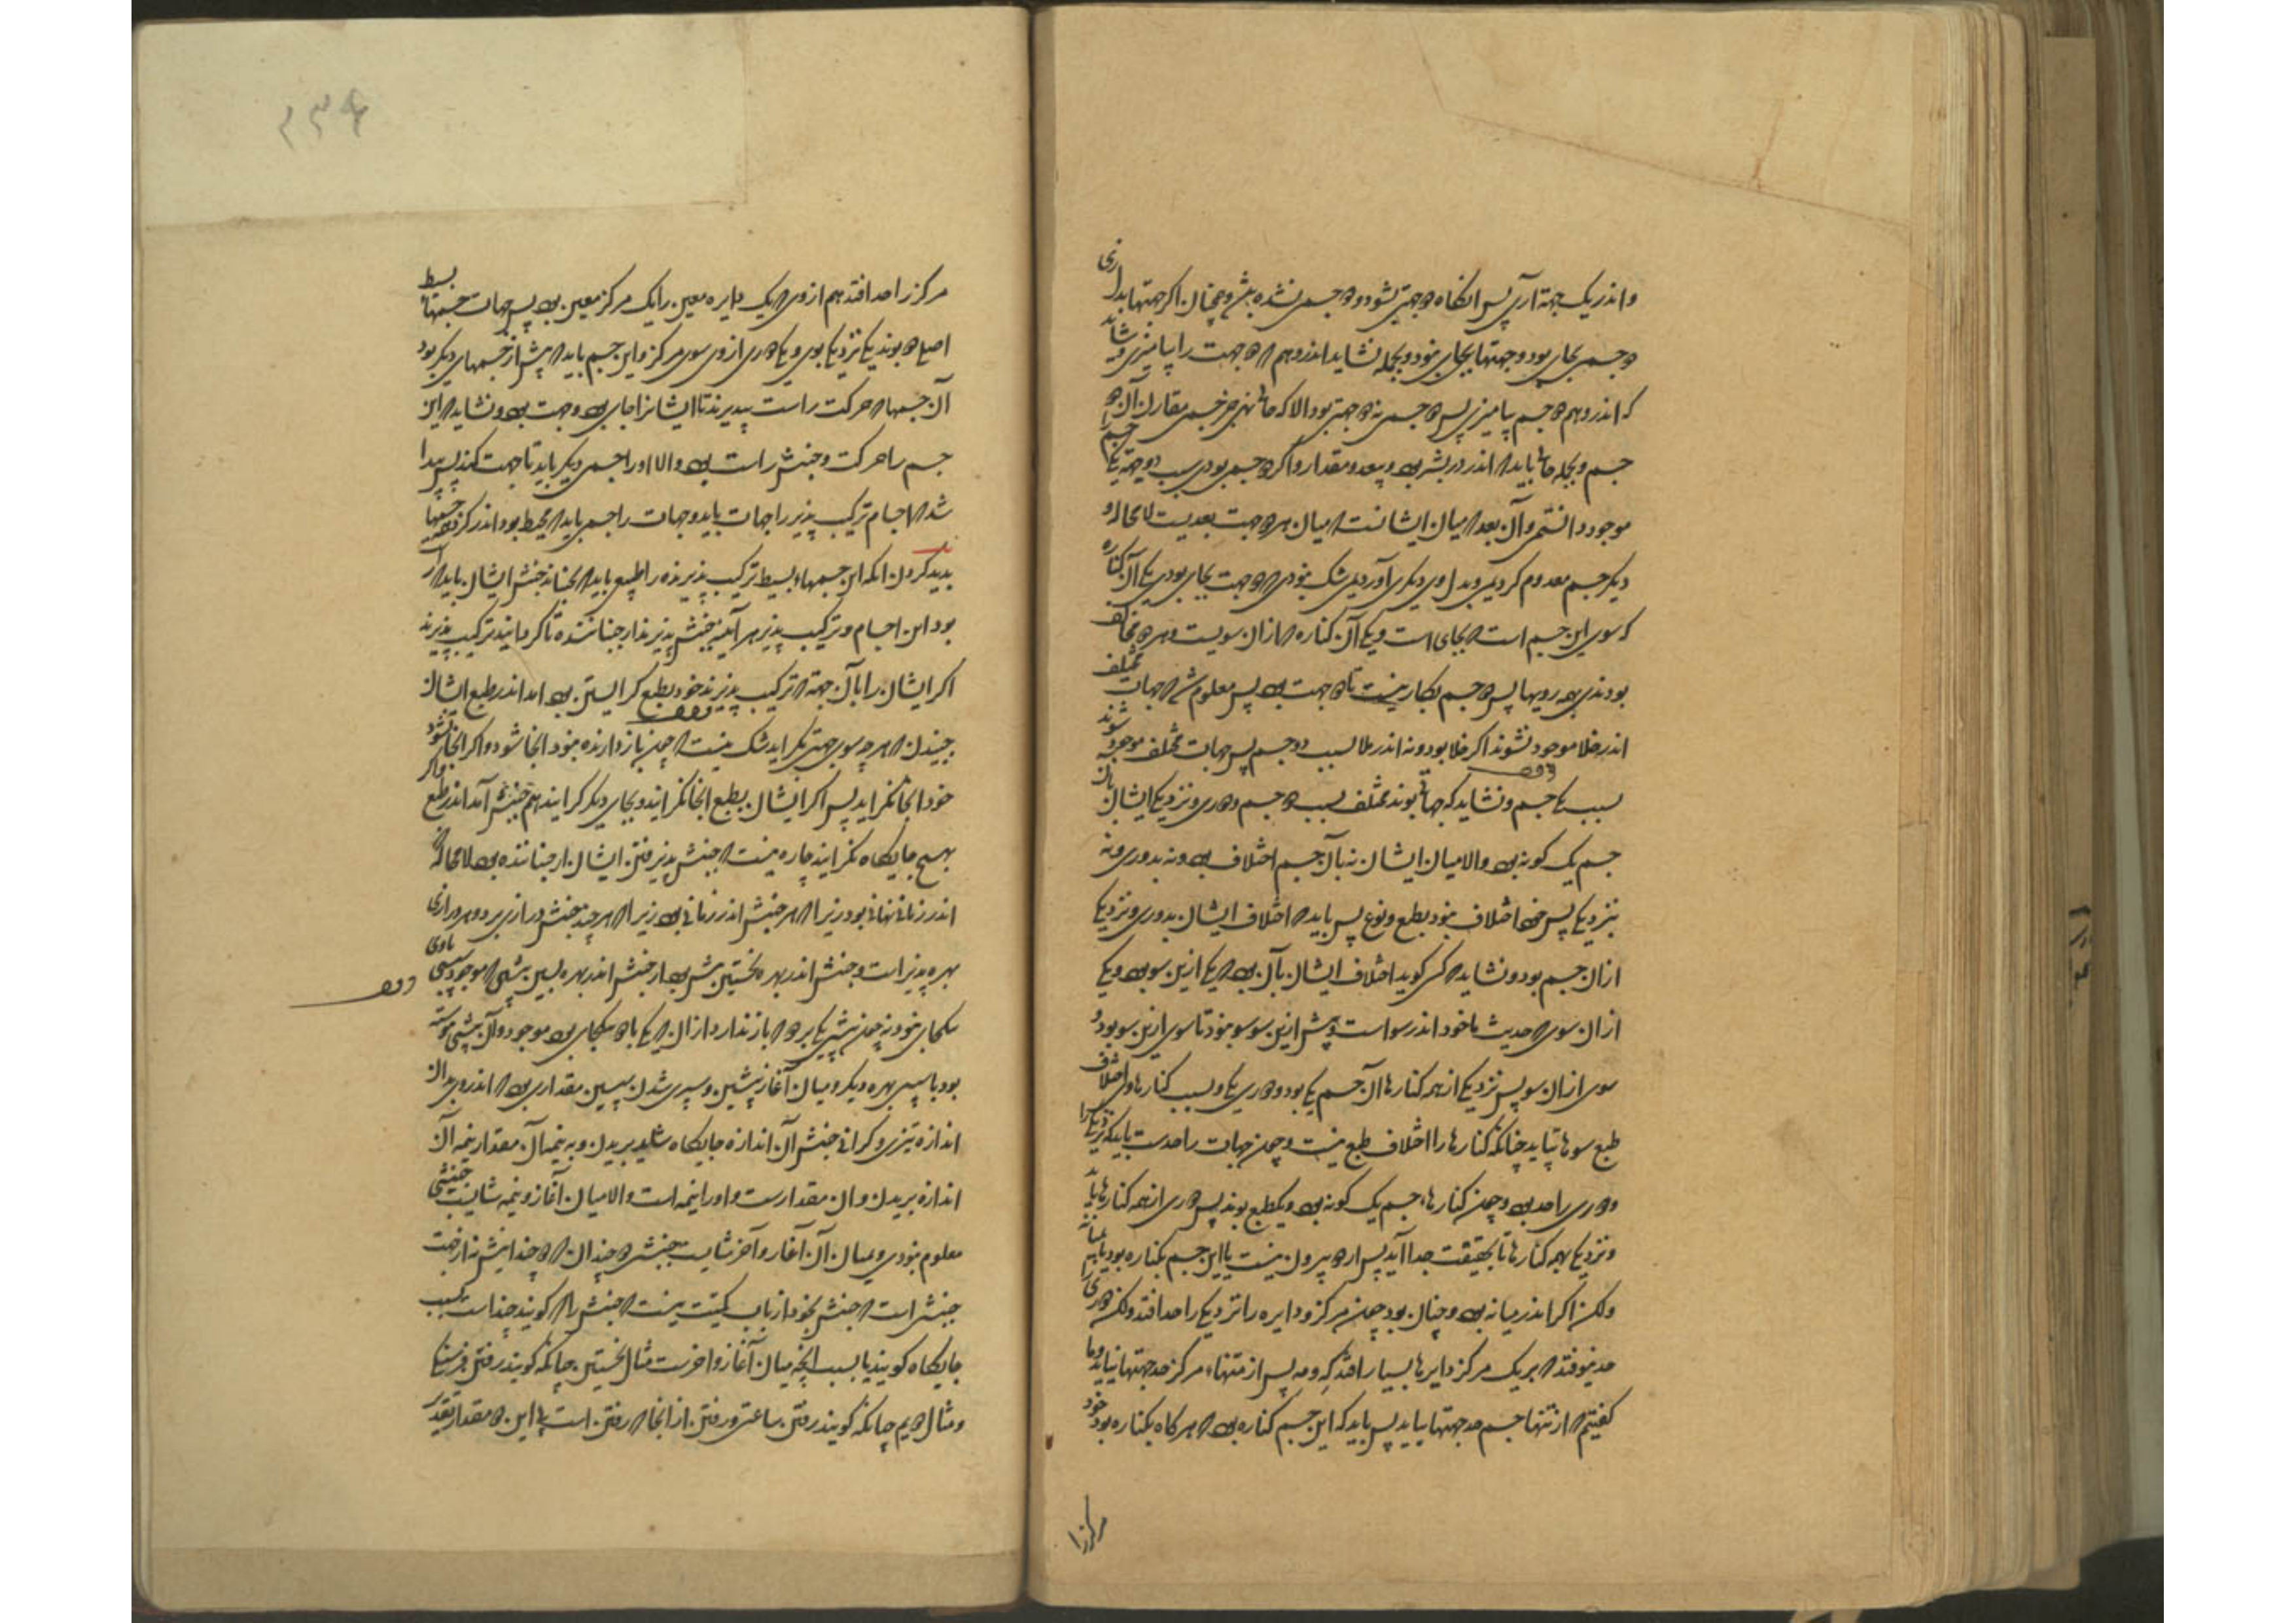 واندر یک جهة آری پس آنگاه دو جهتی نشود و دو جسمی نشده بش و همچنان اکر جهتها بداری
دو جسم بجای بود و جهتها بجای نبود و بجمله نشاید اندر وهم که دو جهت را بیامیزی و شاید
که اندر وهم دو جسم بیامیزی پس دو جسمی نه دو جهتی بود الا که جائی نهی جز جسم مقارن آن دو
جسم و بجمله جائی باید که اندر در بشر بود و ببعد و مقدار و اکر دو جسم بودی سبب دو جهة یکی را
موجود دانستمی و آن بعد که میان ایشانست که میان هر دو جهت بعدیست لا محاله و
دیکر جسم معدوم کردیمی و بدل وی دیکری آوردیمی شک نبودی که دو جهت بجای بودی یکی آن کناره
که سوی این جسم است که بجای است و یکی آن کناره که از آن سویست و هر دو مخالف
بودندی بهمه رویها پس دو جسم بکار نیست تا دو جهت بود پس معلوم شد که جهات مختلف
اندر خلا موجود نشوند اکر خلا بود و نه اندر ملا بسبب دو جسم پس جهات مختلف موجود شوند
بسبب یکی جسم و نشاید که جهاتی بوند مختلف بسبب دو جسم و دوری و نزدیکی ایشان بآن
جسم یک کونه بود والا میان ایشان نه بآن جسم اختلاف بود و نه بدوری و نه
بنزدیکی پس خود اختلاف نبود بطبع و نوع پس باید که اختلاف ایشان بدوری و نزدیکی
از آن جسم بود و نشاید که کسی کوید اختلاف ایشان بآن بود که یکی از این سو بود و یکی
از آن سو که حدیث ما خود اندر سو است و پیش از این سو سو نبود تا سوی از این سو بود و
سوی از آن سو پس نزدیکی از همه کنارهاء آن جسم یکی بود و دوری یکی و بسبب کنارها و اختلاف
طبع سوها نیاید چنانکه کنارها را اختلاف طبع نیست و چون جهات را حدست باید که نزدیکی را
و دوری را حد بود و چون کنارهاء جسم یک کونه بود و یکطبع بوند پس دوری از همه کنارها باید
و نزدیکی بهمه کنارها تا بحقیقت جدا آید پس از دو بیرون نیست یا این جسم بکناره بود یا بمیانه
ولکن اکر اندر میانه بود و چنان بود چون مرکز و دایره را نزدیکی را حد افتد ولکن دوری را
حد نیوفتد که بر یک مرکز دایرها بسیار افتد که و مه پس از تنها مرکز حد جهتها نیاید و ما
کفتیم که از تنها جسم حد جهتها بیاید پس باید که این جسم کناره بود که هر کاه بکناره بود خود
مرکز را
۲۳۴
مرکز را حد افتد هم از وی که یک دایره معین را یک مرکز معین بود پس جهات جسمهاء بسیط
اصلی دو بوند یکی نزدیکی بوی و یکی دوری از وی سوی مرکز و این جسم باید که پیش از جسمهای دیکر بود
آن جسمها که حرکت راست بپذیرند تا ایشانرا جای بود و جهت بود و نشاید که این
جسم را حرکت و جنبش راست بود والا او را جسمی دیکر باید تا جهت کند پس پیدا
شد که اجسام ترکیب پذیر را جهات باید و جهات را جسمی باید که محیط بود اندر کرد جسمها
پدید کردن آنکه این جسمهاء بسیط ترکیب پذیرنده را طبع باید که بجنباند جنبش ایشان باید که راست
بود این اجسام ترکیب پذیر هر آینه جنبش پذیرند از جنباننده تا کرد آیند ترکیب پذیرند
اکر ایشان را بآن جهة که ترکیب پذیرند خود بطبع کرایستن بود آمد اندر طبع ایشان
جنبیدن که هر چه سوی جهتی کراید شک نیست که چون بازدارنده نبود آنجا شود و اکر آنجا نشود
خود آنجا نکراید پس اکر ایشان بطبع آنجا نکرایند و بجای دیکر کرایند هم جنبش آمد اندر طبع و اکر
بهیچ جایکاه نکرایند چاره نیست که جنبش پذیرفتن ایشان از جنباننده بود لا محاله
اندر زمانی نهانی بود زیرا که هر جنبش اندر زمانی بود زیرا که هر چند جنبش درازی برد و هر درازی
بهره پذیر است و جنبش اندر بهره نخستین پیش بود از جنبش اندر بهره پسین پیشی که موجود سپسی باوی
بکجای نبود نه چون پیشی یکی بر دو که باز ندارد از آن که یکی با دو بیکجای بود موجود و آن پیشی پیوسته
بود با سپسی بهره دیکر و میان آغاز پیشین و سپری شدن سپسین مقداری بود که اندر وی بدان
اندازه تیزی و کرانی جنبش آن اندازه جایکاه شاید بریدن و به نیمه آن مقدار نیمه آن
اندازه بریدن و آن مقدارست و او را نیمه است والا میان آغاز و نیمه شایست جنبشی
معلوم نبودی و میان آن آغاز و آخر شایست جنبشی دو چندان که دو چندایش نه از جهت
جنبش است که جنبش بخود از باب کمیت نیست که جنبش را که کویند چند است بسبب
جایکاه کویند یا بسبب آنچه میان آغاز و آخرست مثال نخستین چنانکه کویند رفتن فرسنکی
و مثال دوم چنانکه کویند رفتن ساعتی و رفتن از آنجا که رفتن است این دو مقدار تقدیر